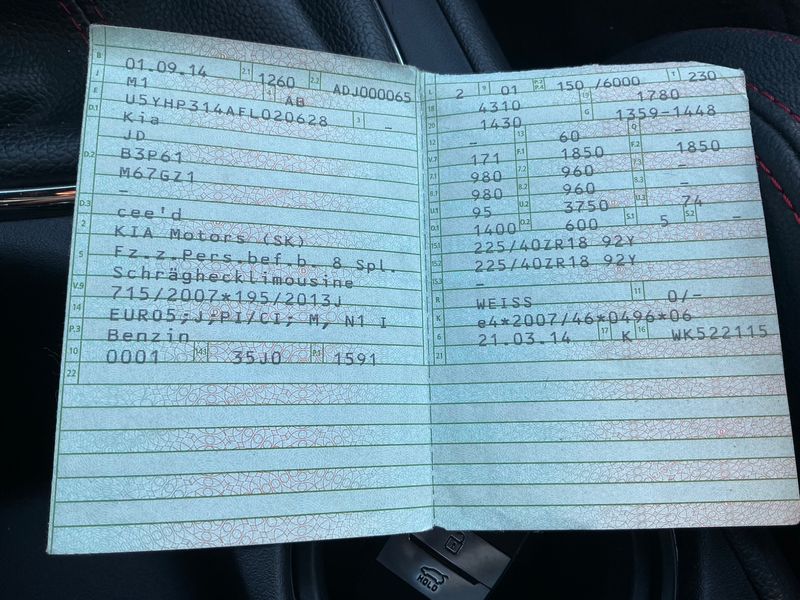 B 01.09.14 2.1 1260 2.2 ADJ000065
J M1 4 AB
E U5YHP314AFL020628 3 –
D.1 Kia
JD
D.2 B3P61
M67GZ1
–
D.3 cee'd
2 KIA Motors (SK)
5 Fz.z.Pers.bef.b. 8 Spl.
Schräghecklimousine
V.9 715/2007*195/2013J
14 EURO5;J;PI/CI; M, N1 I
P.3 Benzin
10 0001 14.1 35J0 P.1 1591
22
L 2 9 01 P.2 P.4 150 /6000 T 230
18 4310 19 1780
20 1430 G 1359-1448
12 – 13 60 Q –
V.7 171 F.1 1850 F.2 1850
7.1 980 7.2 960 7.3 –
8.1 980 8.2 960 8.3 –
U.1 95 U.2 3750 U.3 74
O.1 1400 O.2 600 S.1 5 S.2 –
15.1 225/40ZR18 92Y
15.2 225/40ZR18 92Y
15.3 –
R WEISS 11 0/–
K e4*2007/46*0496*06
6 21.03.14 17 K 16 WK522115
21
HOLD